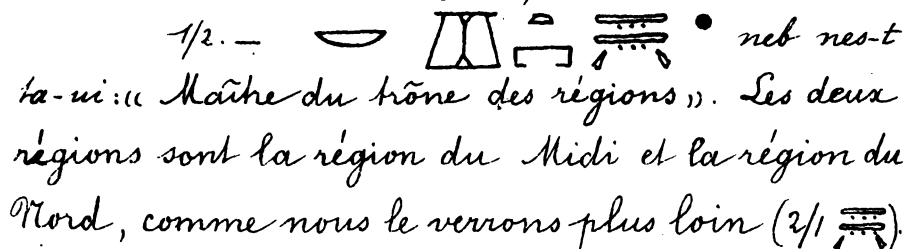 1/2. — neb nes-t
ta-ui : « Maître du trône des régions ». Les deux
régions sont la région du Midi et la région du
Nord, comme nous le verrons plus loin (2/1 ).